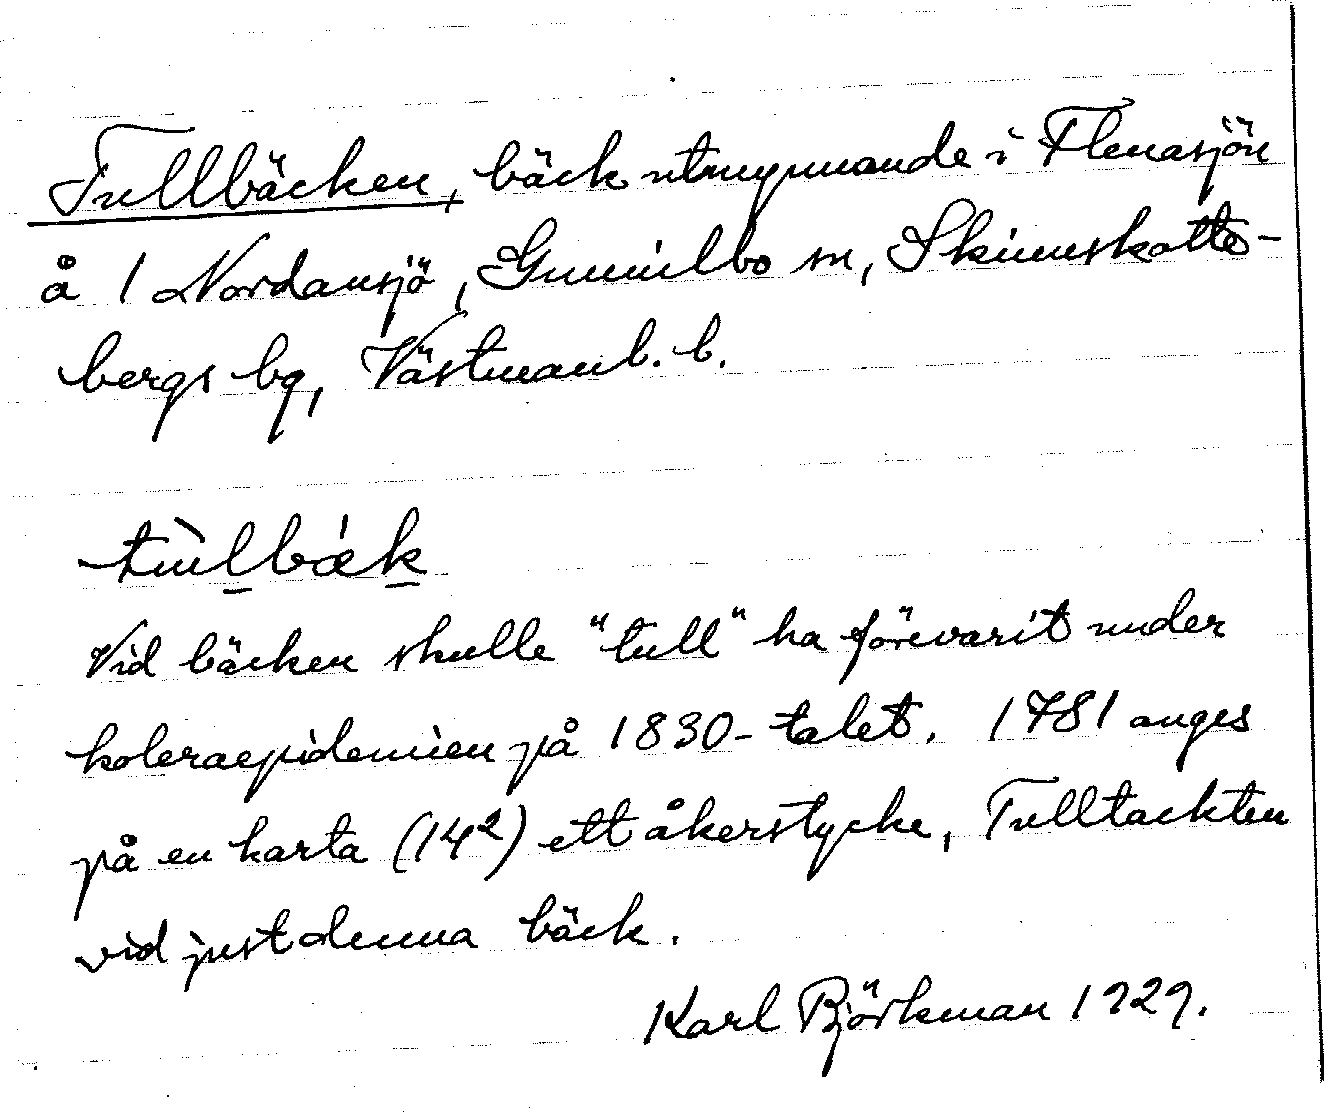 Tullbäcken, bäck utmynnande i Flenasjön
å 1 Nordansjö, Gunnilbo sn, Skinnskatte-
bergs bg, Västmanl. l.
tùlbæ̀k
Vid bäcken skulle "tull" ha förevarit under
koleraepidemien på 1830-talet. 1781 anges
på en karta (14²) ett åkerstycke, Tulltäckten
vid just denna bäck.
Karl Björkman 1929.